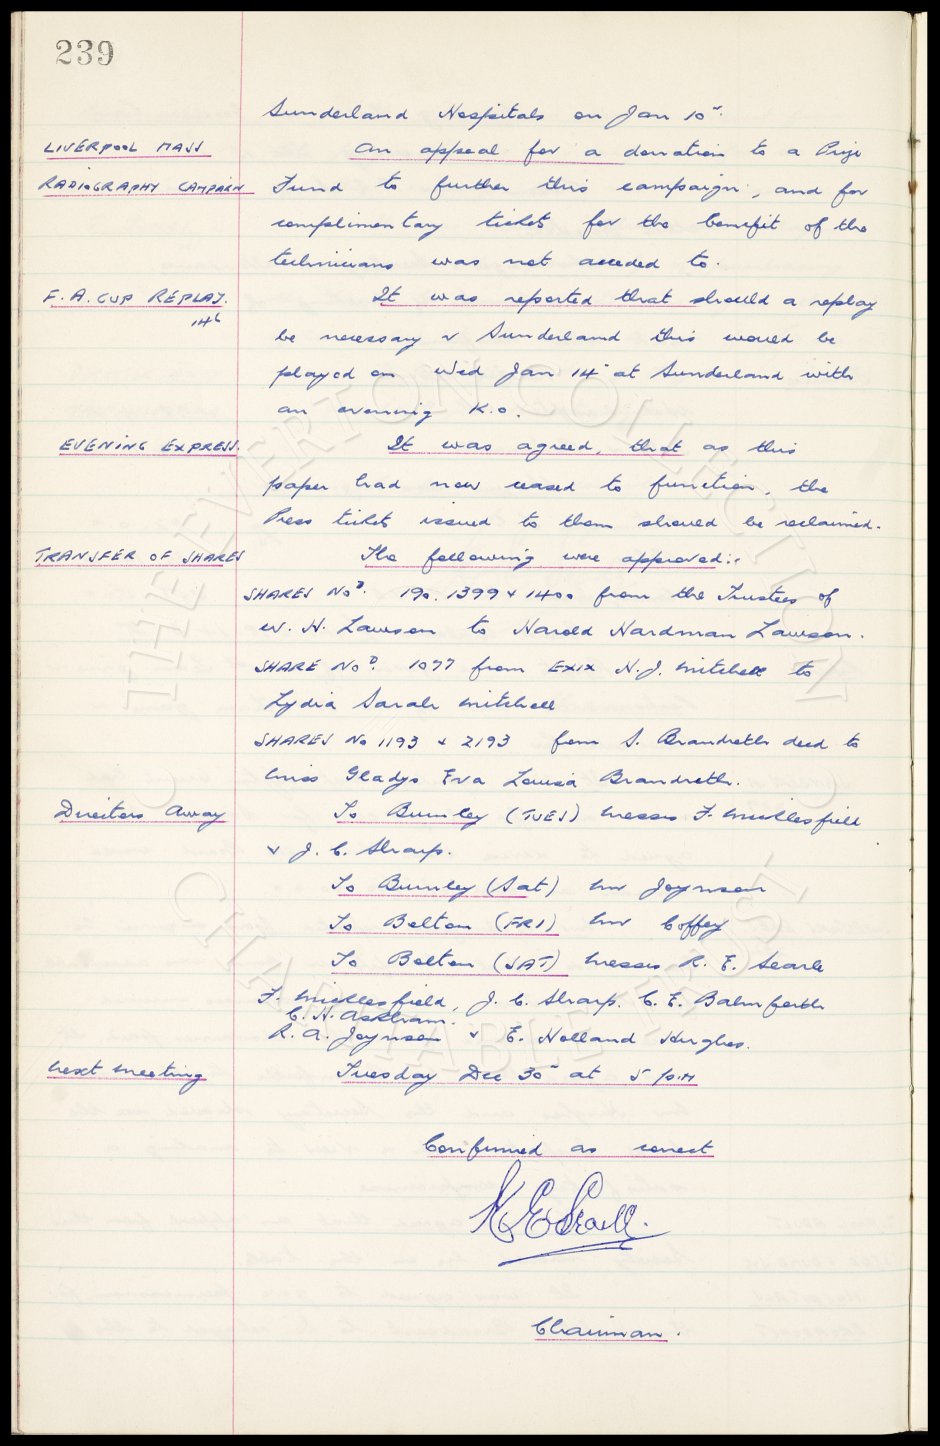 239
Sunderland Hospitals on Jan 10".
LIVERPOOL MASS An appeal for a donation to a Prize
RADIOGRAPHY CAMPAIGN Fund to further this campaign, and for
complimentary tickets for the benefit of the
technicians was not acceded to.
F. A. CUP REPLAY. It was reported that should a replay
146
be necessary v Sunderland this would be
played on Wed Jan 14" at Sunderland with
an evening K.O.
EVENING EXPRESS. It was agreed, that as this
paper had now ceased to function, the
Press tickets issued to them should be reclaimed.
TRANSFER OF SHARES The following were approved:-
SHARES Nos. 190. 1399 & 1400 from the Trustees of
W. H. Lawson to Harold Hardman Lawson.
SHARE No. 1077 from EXIX H. J. Mitchell to
Lydia Sarah Mitchell
SHARES No 1193 & 2193 from S. Brandreth decd to
Miss Gladys Eva Louisa Brandreth.
Directors Away To Burnley (TUES) Messrs F. Micklesfield
& J. C. Sharp.
To Burnley (Sat) Mr Joynson
To Bolton (FRI) Mr Coffey
To Bolton (SAT) Messrs R. E. Searle
F. Micklesfield, J. C. Sharp. C. E. Balmforth
C. H. Askham.
R. A. Joynson & E. Holland Hughes.
Next Meeting Tuesday Dec 30" at 5 p.m
Confirmed as correct
R E Searle.
Chairman.
THE EVERTON COLLECTION
CHARITABLE TRUST